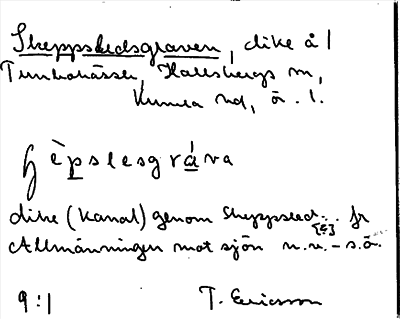 Skeppsledsgraven, dike å 1
Hallsbergs m,
Kumla hd, ö. l.
ɧèpslesgráva
dike (kanal) genom Skeppsled... fr
[E]
Allmänningen mot sjön n.v.-s.ö.
9:1 T. Ericsson